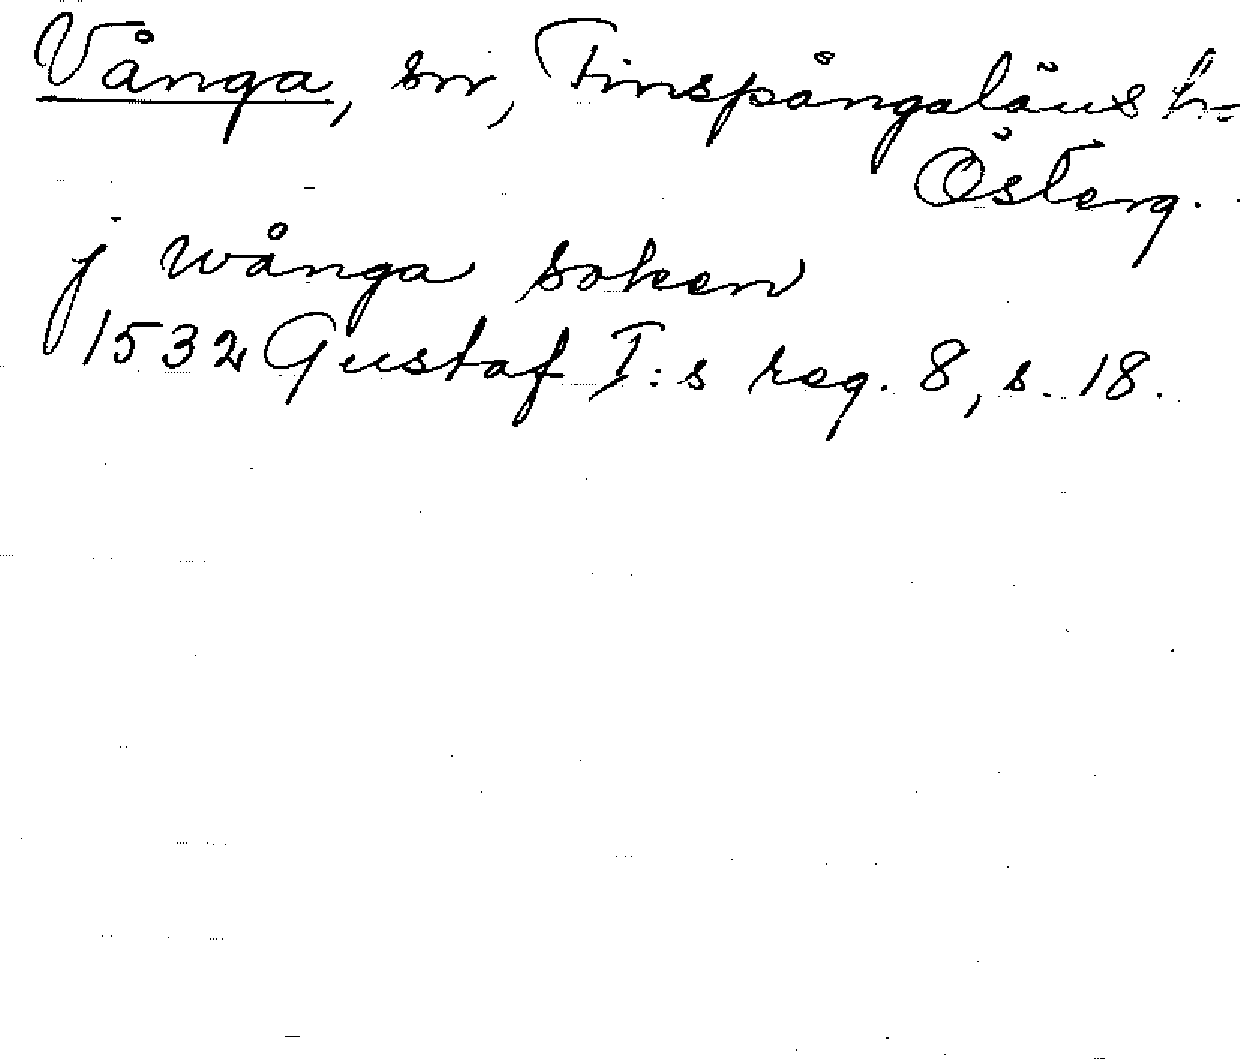 Vånga, sn, Finspångaläns h-
Österg.
j wånga soken
1532 Gustaf I:s reg. 8, s. 18.